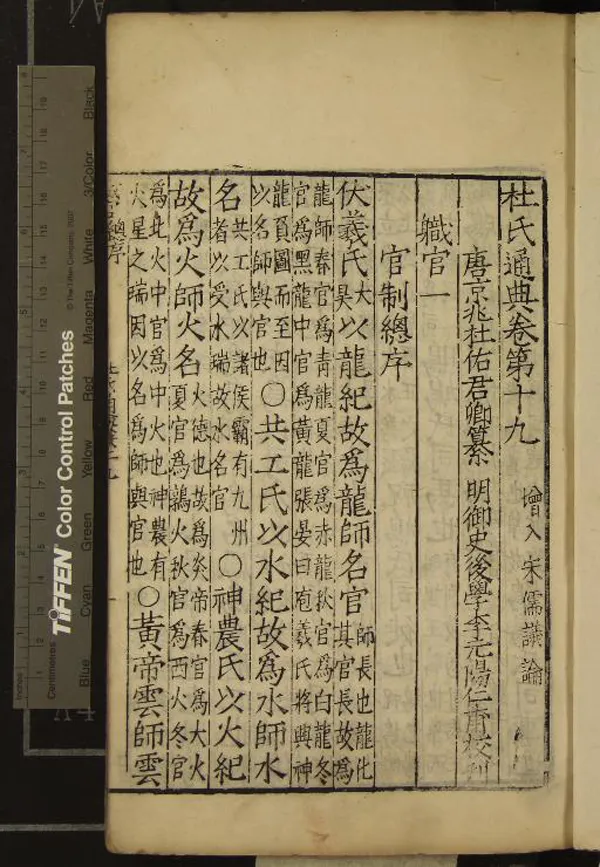 杜氏通典卷第十九
增入宋儒議論
唐京兆杜佑君卿纂 明御史後學李元陽仁甫校刊
職官一
官制總序
伏羲氏太昊以龍紀故爲龍師名官師長也龍化其官長故爲
龍師春官爲青龍夏官爲赤龍秋官爲白龍冬
官爲黑龍中官爲黃龍張晏曰庖羲氏將興神
龍負圖而至因
以名師與官也〇共工氏以水紀故爲水師水
名共工氏以諸侯霸有九州
者以受水瑞故水名官〇神農氏以火紀
故爲火師火名火德也故爲炎帝春官爲大火
夏官爲鶉火秋官爲西火冬官
爲北火中官爲中火也神農有
火星之瑞因以名爲師與官也〇黃帝雲師雲
TIFFEN Color Control Patches
© The Tiffen Company, 2007
Inches
Centimetres
Blue
Cyan
Green
Yellow
Red
Magenta
White
3/Color
Black